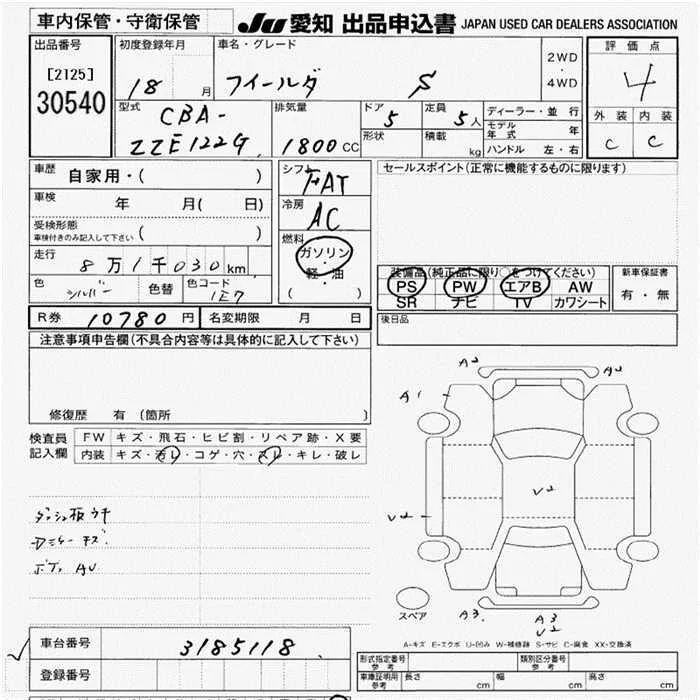 車内保管・守衛保管
JU 愛知 出品申込書 JAPAN USED CAR DEALERS ASSOCIATION
出品番号
[2125]
30540
初度登録年月
18 月
車名・グレード
フィールダ S
2WD
・
4WD
評価点
4
外装 内装
C C
型式
CBA-
ZZE122G
排気量
1800 CC
ドア
5
定員
5人
形状
積載
kg
ディーラー・並行
モデル年式 年
ハンドル 左・右
車歴 自家用・( )
車検 年 月( 日)
受検形態
車検付きのみ記入して下さい ( )
走行 8万1千030km
色 シルバー
色替
色コード 1E7
シフト FAT
冷房 AC
燃料 ガソリン
・
軽・油
( )
セールスポイント(正常に機能するものに限ります)
装備品(純正品に限り○をつけてください)
PS PW エアB AW
SR ナビ TV カワシート
新車保証書
有・無
後日品
R券 10780 円 名変期限 月 日
注意事項申告欄(不具合内容等は具体的に記入して下さい)
修復歴 有(箇所 )
検査員
記入欄
FW キズ・飛石・ヒビ割・リペア跡・X要
内装 キズ・汚レ・コゲ・穴・スレ・キレ・破レ
ダッシュ板ウキ
Dミラーキズ
ボディ AU
A2 A2
A1
V2
V2
スペア
A3 A3
V2
A-キズ E-エクボ U-凹み W-補修跡 S-サビ C-腐食 XX-交換済
車台番号 3185118
登録番号
形式指定番号
参考
類別区分番号
参考
車庫証明用
参考
長さ cm 幅 cm 高さ cm